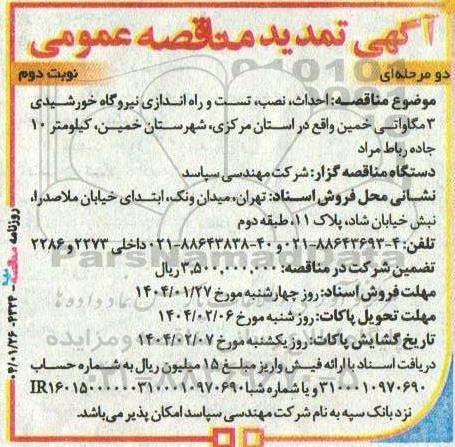 آگهی تمدید مناقصه عمومی
دو مرحله‌ای
نوبت دوم
موضوع مناقصه: احداث، نصب، تست و راه اندازی نیروگاه خورشیدی
۳ مگاواتی خمین واقع در استان مرکزی، شهرستان خمین، کیلومتر ۱۰
جاده رباط مراد
دستگاه مناقصه گزار: شرکت مهندسی سپاسد
نشانی محل فروش اسناد: تهران، میدان ونک، ابتدای خیابان ملاصدرا،
نبش خیابان شاد، پلاک ۱۱، طبقه دوم
تلفن: ۴-۸۸۶۴۳۶۹۳-۰۲۱ و ۴۰-۸۸۶۴۳۸۳۸-۰۲۱ داخلی ۲۲۷۳ و ۲۲۸۶
تضمین شرکت در مناقصه: ۳,۵۰۰,۰۰۰,۰۰۰ ریال
مهلت فروش اسناد: روز چهارشنبه مورخ ۱۴۰۴/۰۱/۲۷
مهلت تحویل پاکات: روز شنبه مورخ ۱۴۰۴/۰۲/۰۶
تاریخ گشایش پاکات: روز یکشنبه مورخ ۱۴۰۴/۰۲/۰۷
دریافت اسناد با ارائه فیش واریز مبلغ ۱۵ میلیون ریال به شماره حساب
۳۱۰۰۰۱۰۹۷۰۶۹۰ و یا شماره شبا IR۱۶۰۱۵۰۰۰۰۰۰۳۱۰۰۰۱۰۹۷۰۶۹۰
نزد بانک سپه به نام شرکت مهندسی سپاسد امکان پذیر می‌باشد.
روزنامه مناقصه - ۶۳۳۴ - ۰۴/۰۱/۲۶
ParsNamadData